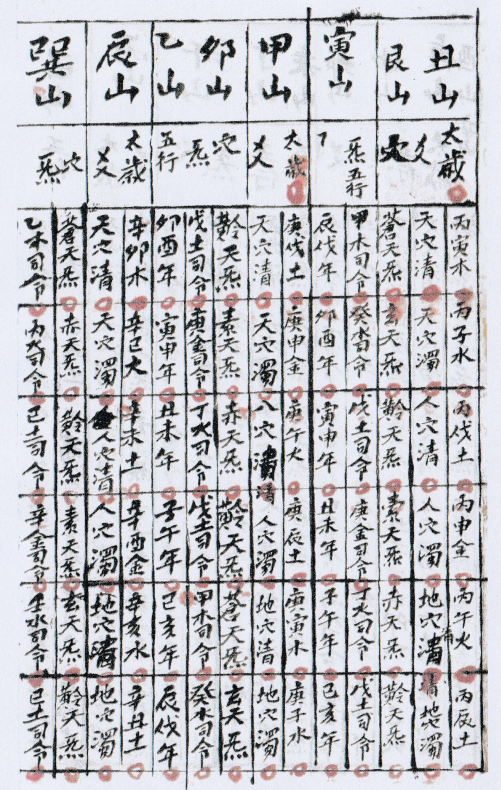 丑山 太歲 丙寅木 丙子水 丙戊土 丙申金 丙午火 丙辰土
爻 天穴清 天穴濁 人穴清 人穴濁 地穴清 地穴濁
艮山 穴 蒼天炁 玄天炁 黅天炁 素天炁 赤天炁 黅天炁
炁 甲木司令 癸水司令 戊土司令 庚金司令 丁火司令 戊土司令
寅山 五行 辰戌年 卯酉年 寅申年 丑未年 子午年 巳亥年
甲山 太歲 庚戌土 庚申金 庚午火 庚辰土 庚寅木 庚子水
爻 天穴清 天穴濁 人穴清 人穴濁 地穴清 地穴濁
卯山 穴 黅天炁 素天炁 赤天炁 黅天炁 蒼天炁 玄天炁
炁 戊土司令 庚金司令 丁火司令 戊土司令 甲木司令 癸水司令
乙山 五行 卯酉年 寅申年 丑未年 子午年 巳亥年 辰戌年
辰山 太歲 辛卯木 辛巳火 辛未土 辛酉金 辛亥水 辛丑土
爻 天穴清 天穴濁 人穴清 人穴濁 地穴清 地穴濁
巽山 穴 蒼天炁 赤天炁 黅天炁 素天炁 玄天炁 黅天炁
炁 乙木司令 丙火司令 己土司令 辛金司令 壬水司令 己土司令